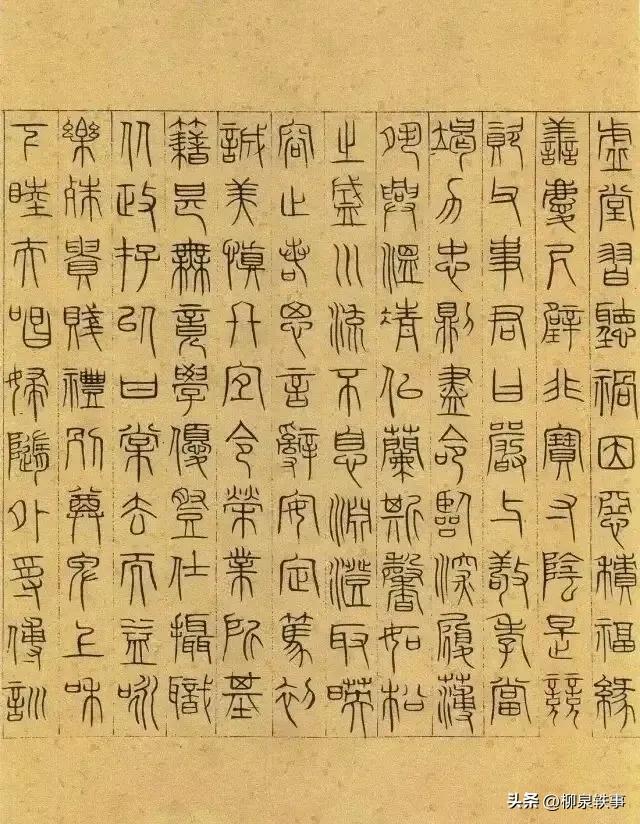 虛堂習聽禍因惡積福緣
善慶尺璧非寶寸陰是競
資父事君曰嚴與敬孝當
竭力忠則盡命臨深履薄
夙興溫凊似蘭斯馨如松
之盛川流不息淵澄取暎
容止若思言辭安定篤初
誠美慎終宜令榮業所基
籍甚無竟學優登仕攝職
從政存以甘棠去而益詠
樂殊貴賤禮別尊卑上和
下睦夫唱婦隨外受傅訓
头条 @柳泉轶事